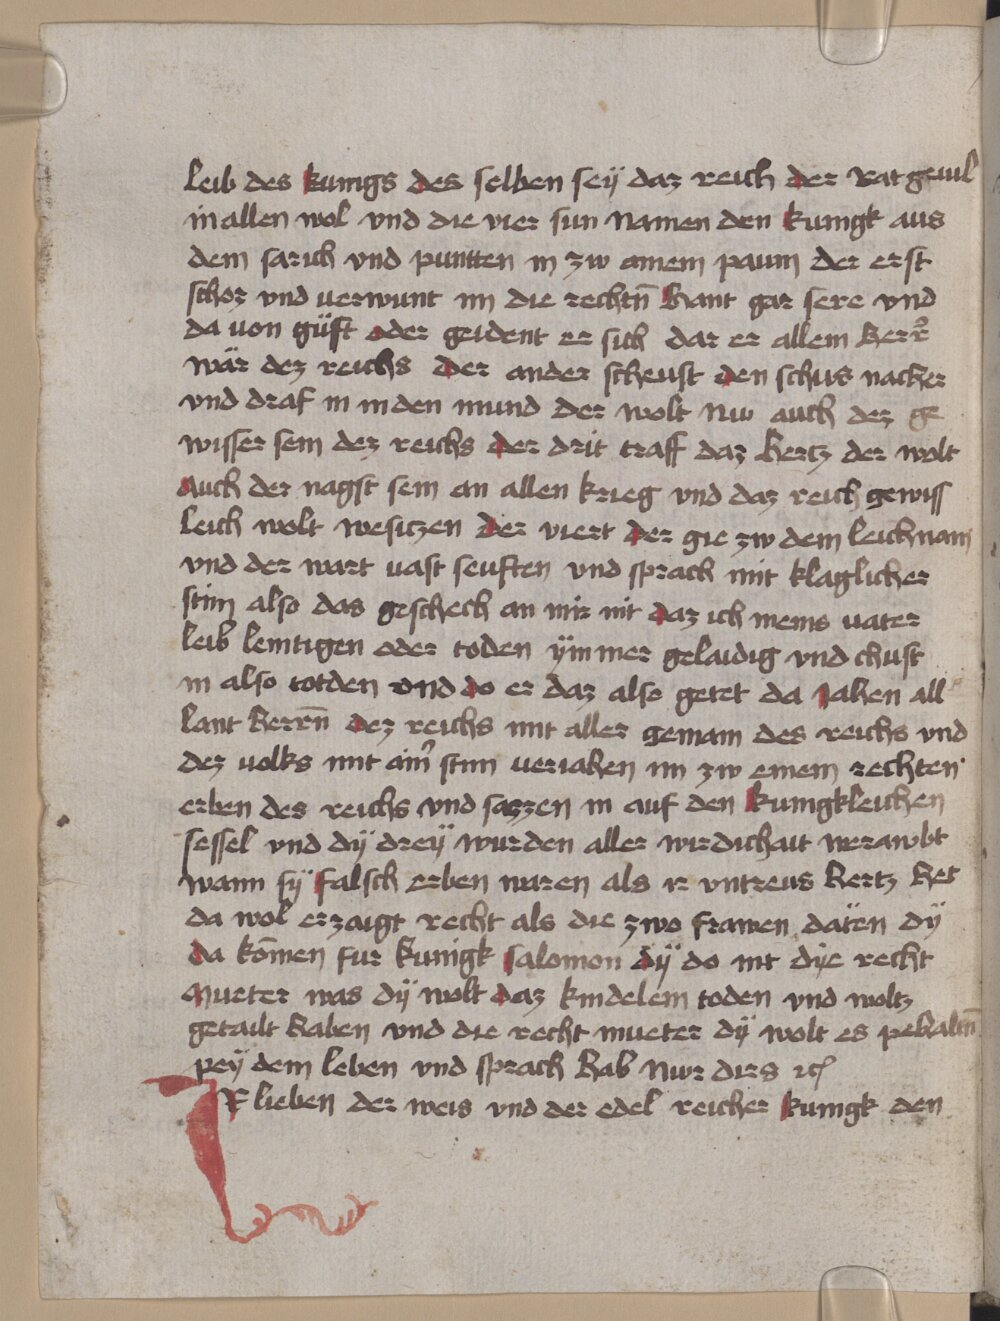 leib des kunigs des selben seÿ daz reich der rat geuil
in allen wol vnd die vier sun namen den kunigk aus
dem sarich vnd puntten in zw ainem paum der erst
schoz vnd uerwunt im die rechtn̄ hant gar sere vnd
da uon güft oder geident er sich dar er allem herr̄
wär dez reichs der ander scheust den schus nacher
vnd draf in in den mund der wolt nw auch dez ge
wisser sein dez reichs der drit traff daz hertz der wolt
auch der nagst sein an allen krieg vnd daz reich gewiss
leich wolt wesitzen der viert der gie zw dem leichnam
vnd der wart uast seuften vnd sprach mit klaglicher
stim also das geschech an mir nit daz ich meins uater
leib lemtigen oder toden ÿmmer gelaidig vnd chust
in also totden vnd do er daz also getet da jahen all
lant herrn̄ dez reichs mit aller gemain des reichs vnd
dez uolks mit aim̄ stim ueriahen im zw einem rechten
erben des reichs vnd sazzen in auf den kunigkleichen
sessel vnd dÿ dreÿ wurden aller wirdichait werawbt
wann sÿ falsch erben waren als ir vntreus hertz het
da wol erzaigt recht als die zwo frawen däten dÿ
da kōmen fur kunigk salomon dÿ do nit dÿe recht
mueter was dÿ wolt daz kindelein toden vnd woltz
getailt haben vnd die recht mueter dÿ wolt es pehaltn̄
peÿ dem leben vnd sprach hab nwr dirs ꝛc
IR lieben der weis vnd der edel reicher kunigk den